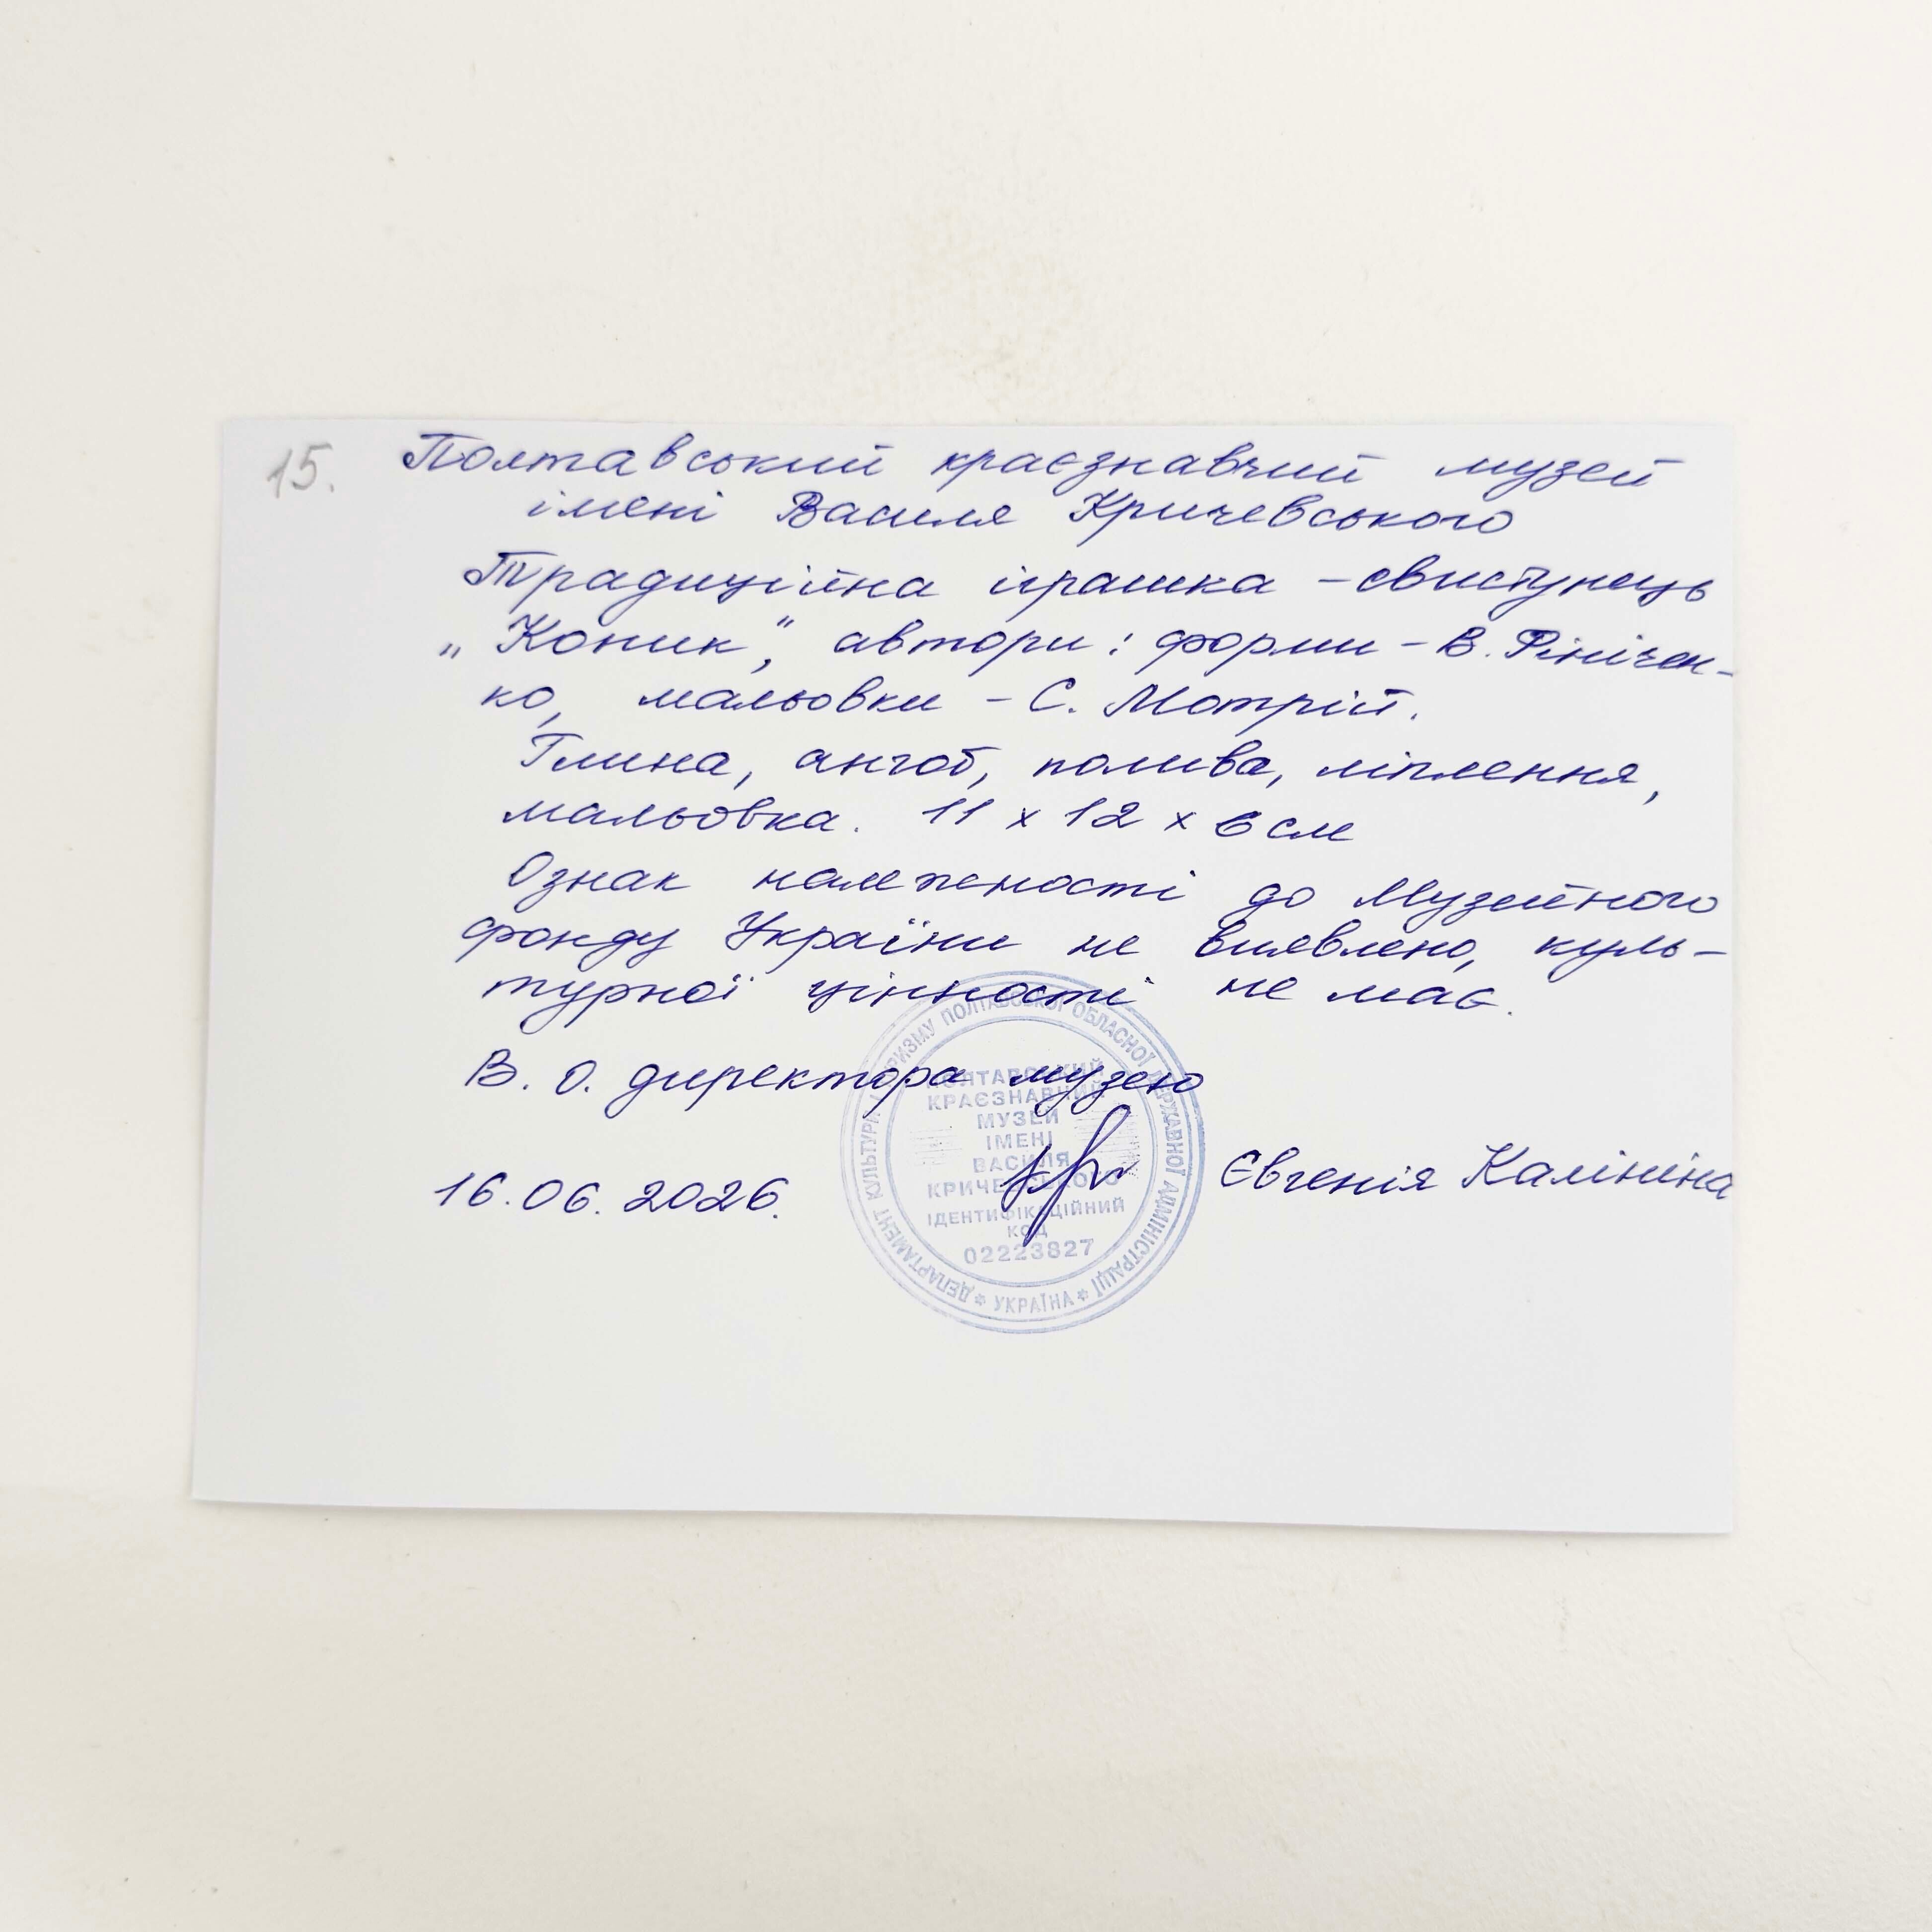 15.
Полтавський краєзнавчий музей
імені Василя Кричевського
Традиційна іграшка – свистунець
„Коник”, автори: форми – В. Рінічен-
ко, мальовки – С. Мотрій.
Глина, ангоб, полива, ліплення,
мальовка. 11 x 12 x 6 см
Ознак належності до Музейного
фонду України не виявлено, куль-
турної цінності не має.
В. О. директора музею
16.06.2026.
Євгенія Калініна
ДЕПАРТАМЕНТ КУЛЬТУРИ І ТУРИЗМУ ПОЛТАВСЬКОЇ ОБЛАСНОЇ ДЕРЖАВНОЇ АДМІНІСТРАЦІЇ * УКРАЇНА *
ПОЛТАВСЬКИЙ
КРАЄЗНАВЧИЙ
МУЗЕЙ
ІМЕНІ
ВАСИЛЯ
КРИЧЕВСЬКОГО
ІДЕНТИФІКАЦІЙНИЙ
КОД
02223827